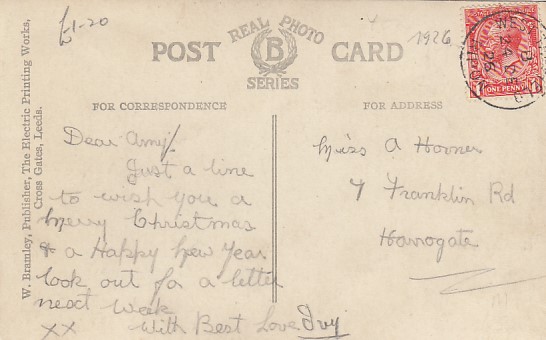 £1-20
1926
REAL PHOTO
POST B CARD
SERIES
W. Bramley, Publisher, The Electric Printing Works,
Cross Gates, Leeds.
FOR CORRESPONDENCE
Dear Amy/.
Just a line
to wish you a
Merry Christmas
& a Happy New Year
look out for a letter
next week
xx With Best Love Ivy
FOR ADDRESS
Miss A Horner
7 Franklin Rd
Harrogate
ONE PENNY